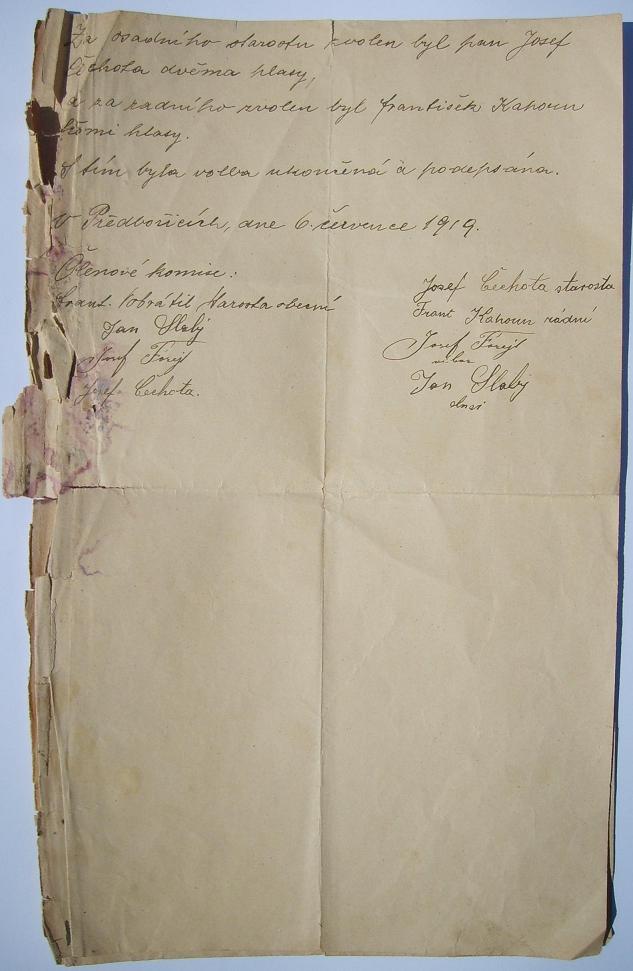 Za osadního starostu zvolen byl pan Josef
Čechota dvěma hlasy,
a za radního zvolen byl František Kahoun
třemi hlasy.
S tím byla volba ukončená a podepsána.
V Předbořicích, dne 6. července 1919.
Členové komise:
Frant. Vobrátil starosta obecní
Jan Slabý
Josef Forejt
Josef Čechota.
Josef Čechota starosta
Frant Kahoun rádní
Josef Forejt
Jan Slabý